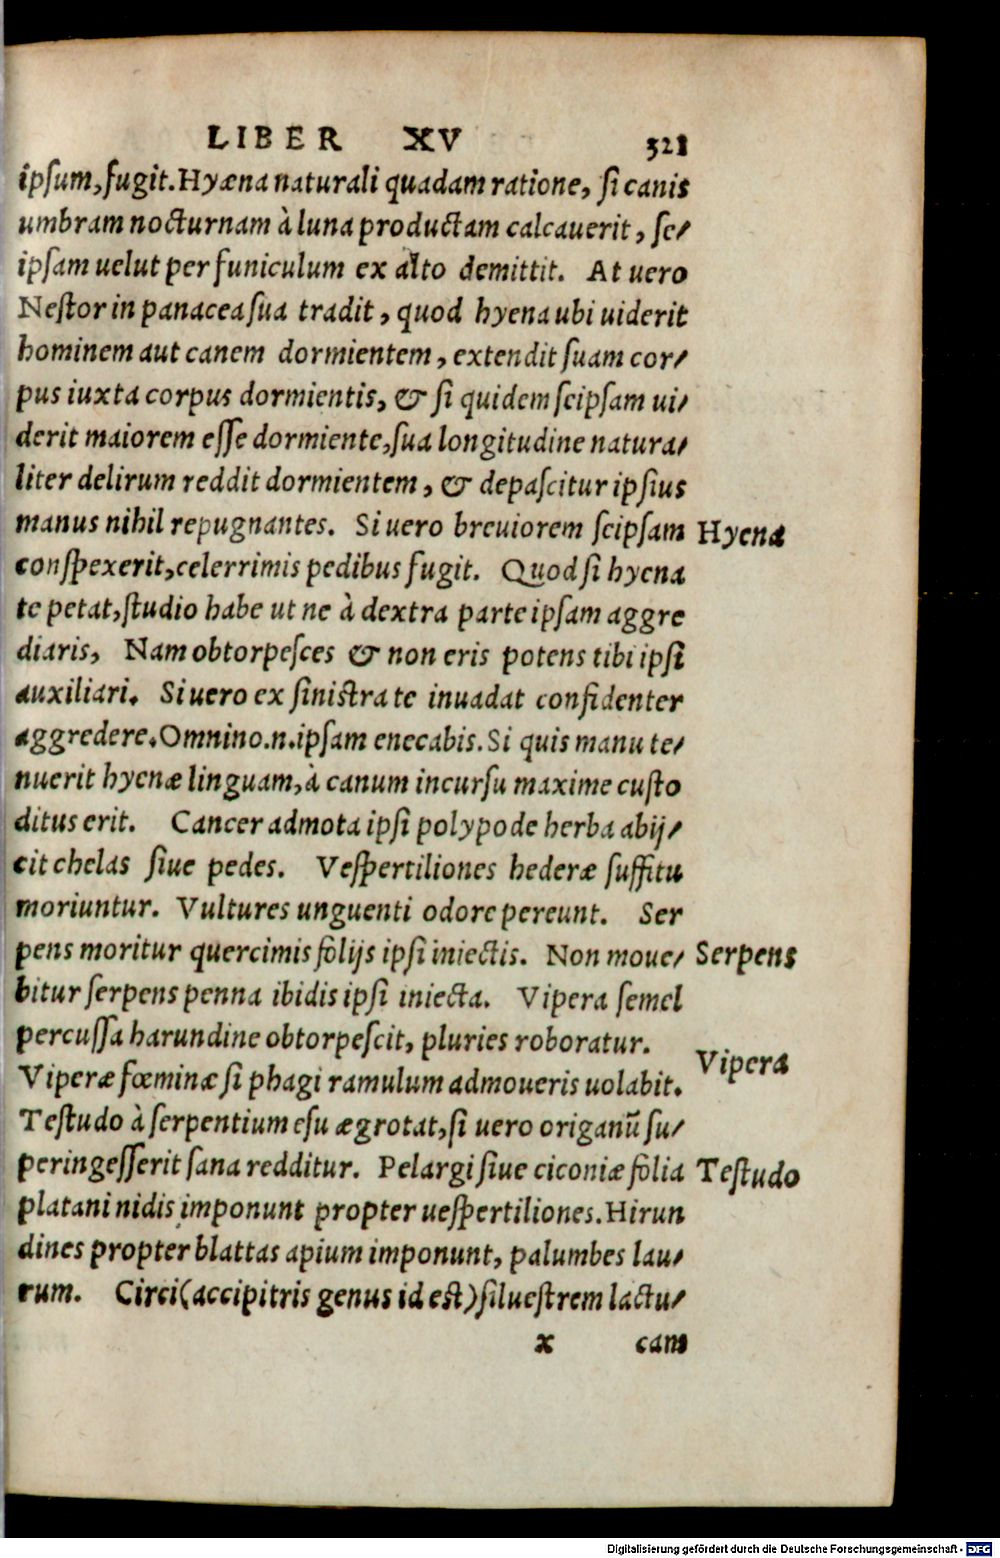 LIBER XV 321
ipsum, fugit. Hyæna naturali quadam ratione, si canis
umbram nocturnam à luna productam calcauerit, se/
ipsam uelut per funiculum ex alto demittit. At uero
Nestor in panacea sua tradit, quod hyena ubi uiderit
hominem aut canem dormientem, extendit suam cor/
pus iuxta corpus dormientis, & si quidem seipsam ui/
derit maiorem esse dormiente, sua longitudine natura/
liter delirum reddit dormientem, & depascitur ipsius
manus nihil repugnantes. Si uero breuiorem seipsam Hyena
conspexerit, celerrimis pedibus fugit. Quod si hyena
te petat, studio habe ut ne à dextra parte ipsam aggre
diaris, Nam obtorpesces & non eris potens tibi ipsi
auxiliari. Si uero ex sinistra te inuadat confidenter
aggredere. Omnino .n. ipsam enecabis. Si quis manu te/
nuerit hyenæ linguam, à canum incursu maxime custo
ditus erit. Cancer admota ipsi polypode herba abij/
cit chelas siue pedes. Vespertiliones hederæ suffitu
moriuntur. Vultures unguenti odore pereunt. Ser
pens moritur quercimis folijs ipsi iniectis. Non moue/ Serpens
bitur serpens penna ibidis ipsi iniecta. Vipera semel
percussa harundine obtorpescit, pluries roboratur.
Vipera
Viperæ fœminæ si phagi ramulum admoueris uolabit.
Testudo à serpentium esu ægrotat, si uero origanũ su/
peringesserit sana redditur. Pelargi siue ciconiæ folia Testudo
platani nidis imponunt propter uespertiliones. Hirun
dines propter blattas apium imponunt, palumbes lau/
rum. Circi (accipitris genus id est) siluestrem lactu/
x cam
Digitalisierung gefördert durch die Deutsche Forschungsgemeinschaft - DFG